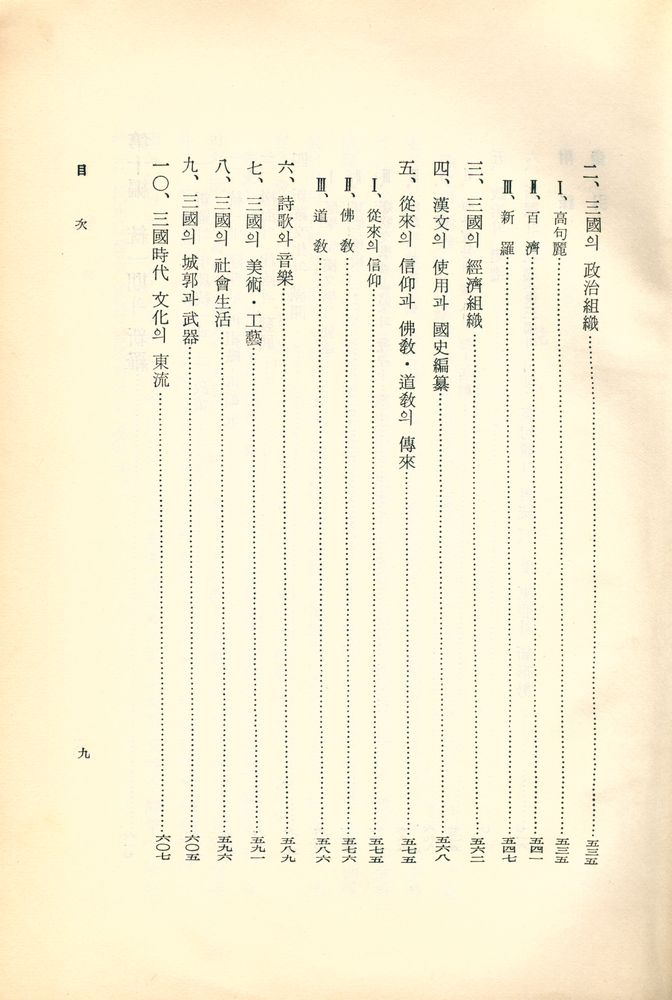 二、三國의 政治組織……五三五
Ⅰ、高句麗……五三五
Ⅱ、百 濟……五四一
Ⅲ、新 羅……五四七
三、三國의 經濟組織……五六二
四、漢文의 使用과 國史編纂……五六八
五、從來의 信仰과 佛敎・道敎의 傳來……五七五
Ⅰ、從來의 信仰……五七五
Ⅱ、佛 敎……五七六
Ⅲ、道 敎……五八六
六、詩歌와 音樂……五八九
七、三國의 美術・工藝……五九一
八、三國의 社會生活……五九六
九、三國의 城郭과 武器……六〇五
一〇、三國時代 文化의 東流……六〇七
目 次
九